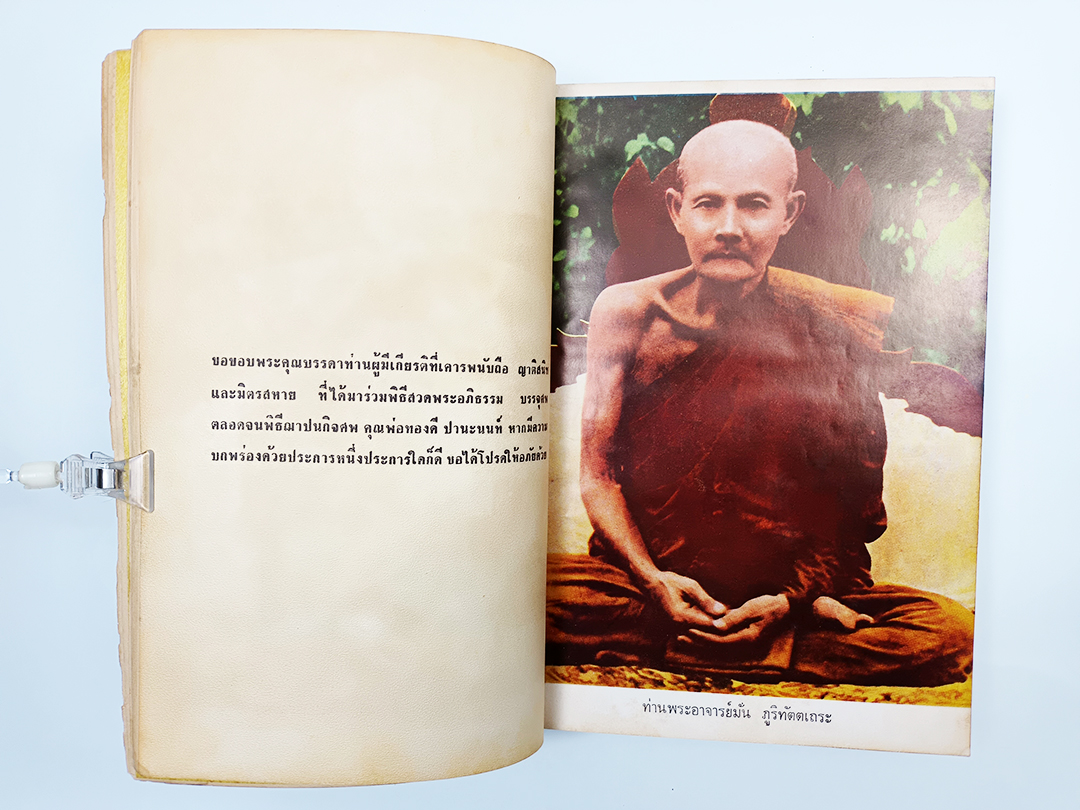 ขอขอบพระคุณบรรดาท่านผู้มีเกียรติที่เคารพนับถือ ญาติสนิท
และมิตรสหาย ที่ได้มาร่วมพิธีสวดพระอภิธรรม บรรจุศพ
ตลอดจนพิธีฌาปนกิจศพ คุณพ่อทองดี ปานะนนท์ หากมีความ
บกพร่องด้วยประการหนึ่งประการใดก็ดี ขอได้โปรดให้อภัยด้วย
ท่านพระอาจารย์มั่น ภูริทัตตเถระ